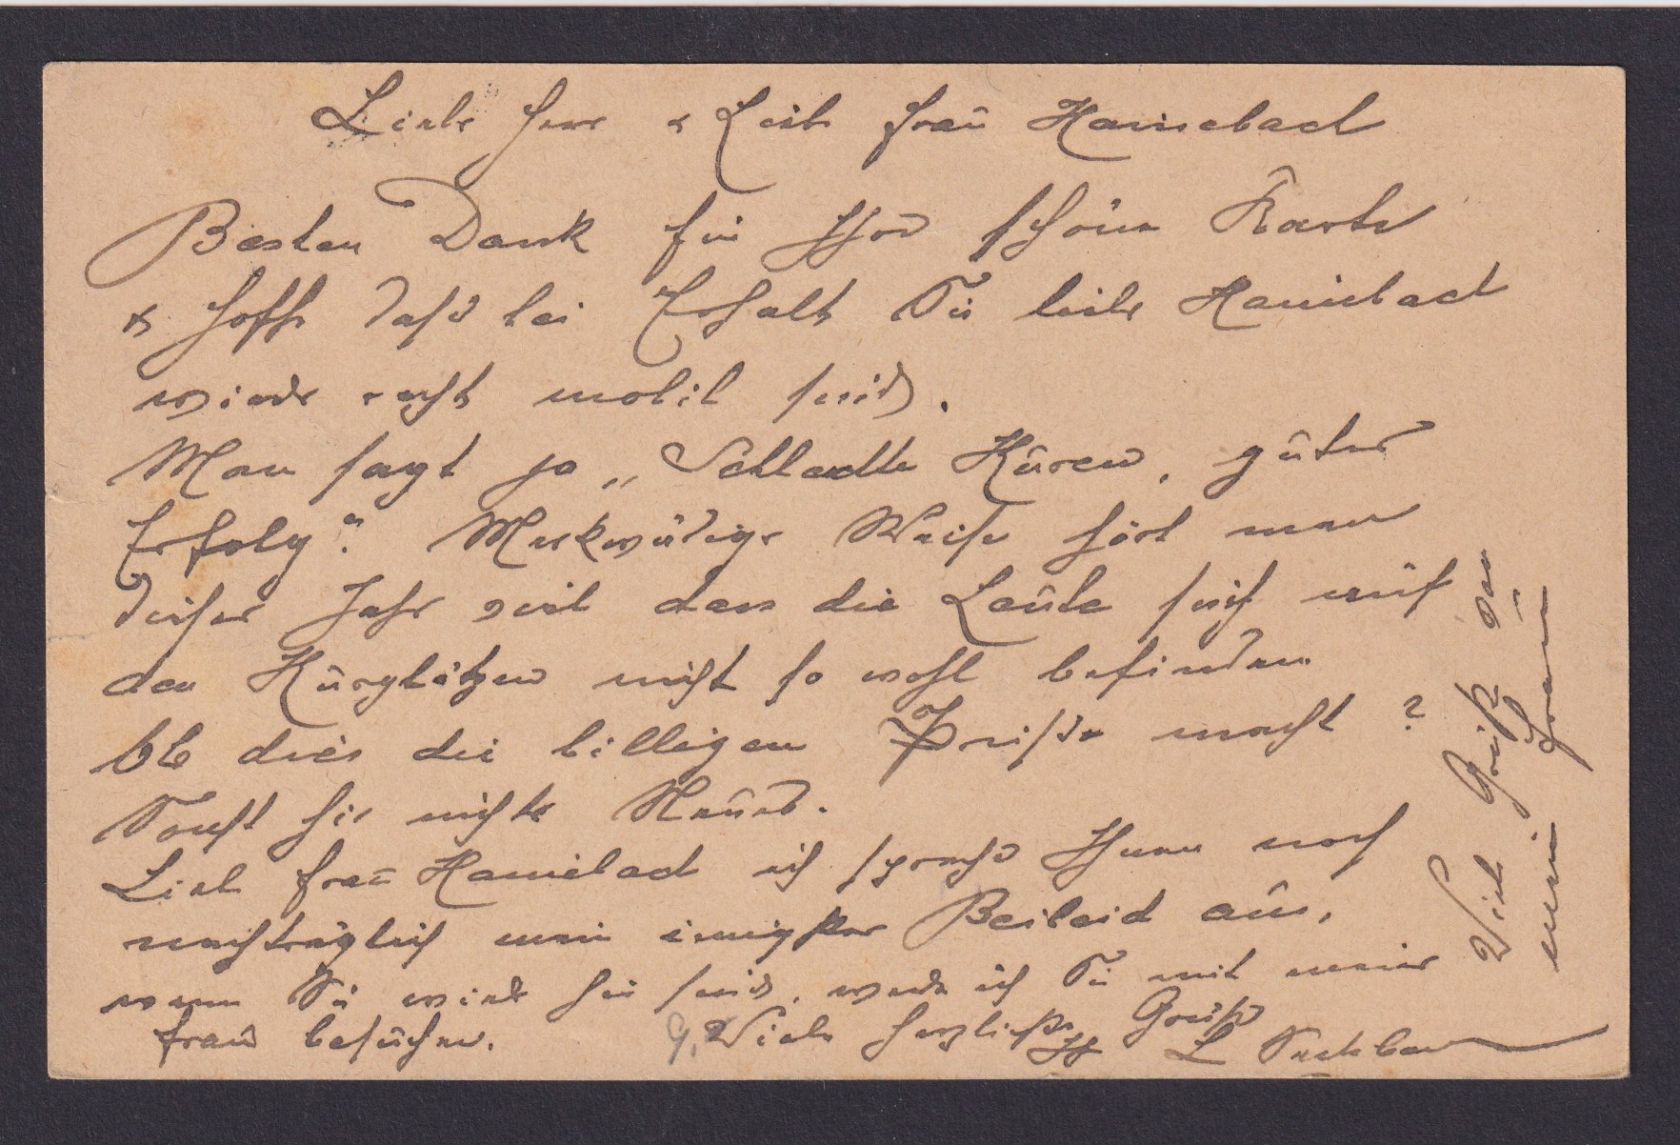 Liebe Herr & Liebe Frau
Besten Dank für Ihre schöne Karte
& hoffe daß bei Erhalt Sie liebe
wieder recht mobil seid.
Man sagt ja „Schlechte Kuren, guter
Erfolg". Merkwürdige Weise hört man
dieser Jahr viel dass die Leute sich auf
den Kurplätzen nicht so wohl befinden
Ob dies die billigen Preise macht?
Sonst hie nichts Neues.
Liebe Frau ich spreche Ihnen noch
nachträglich mein innigster Beileid aus,
wenn Sie wieder hie seid, werde ich Sie mit meiner
Frau besuchen. Viele herzliche Grüße
L
Viele Grüße von
meiner Frau